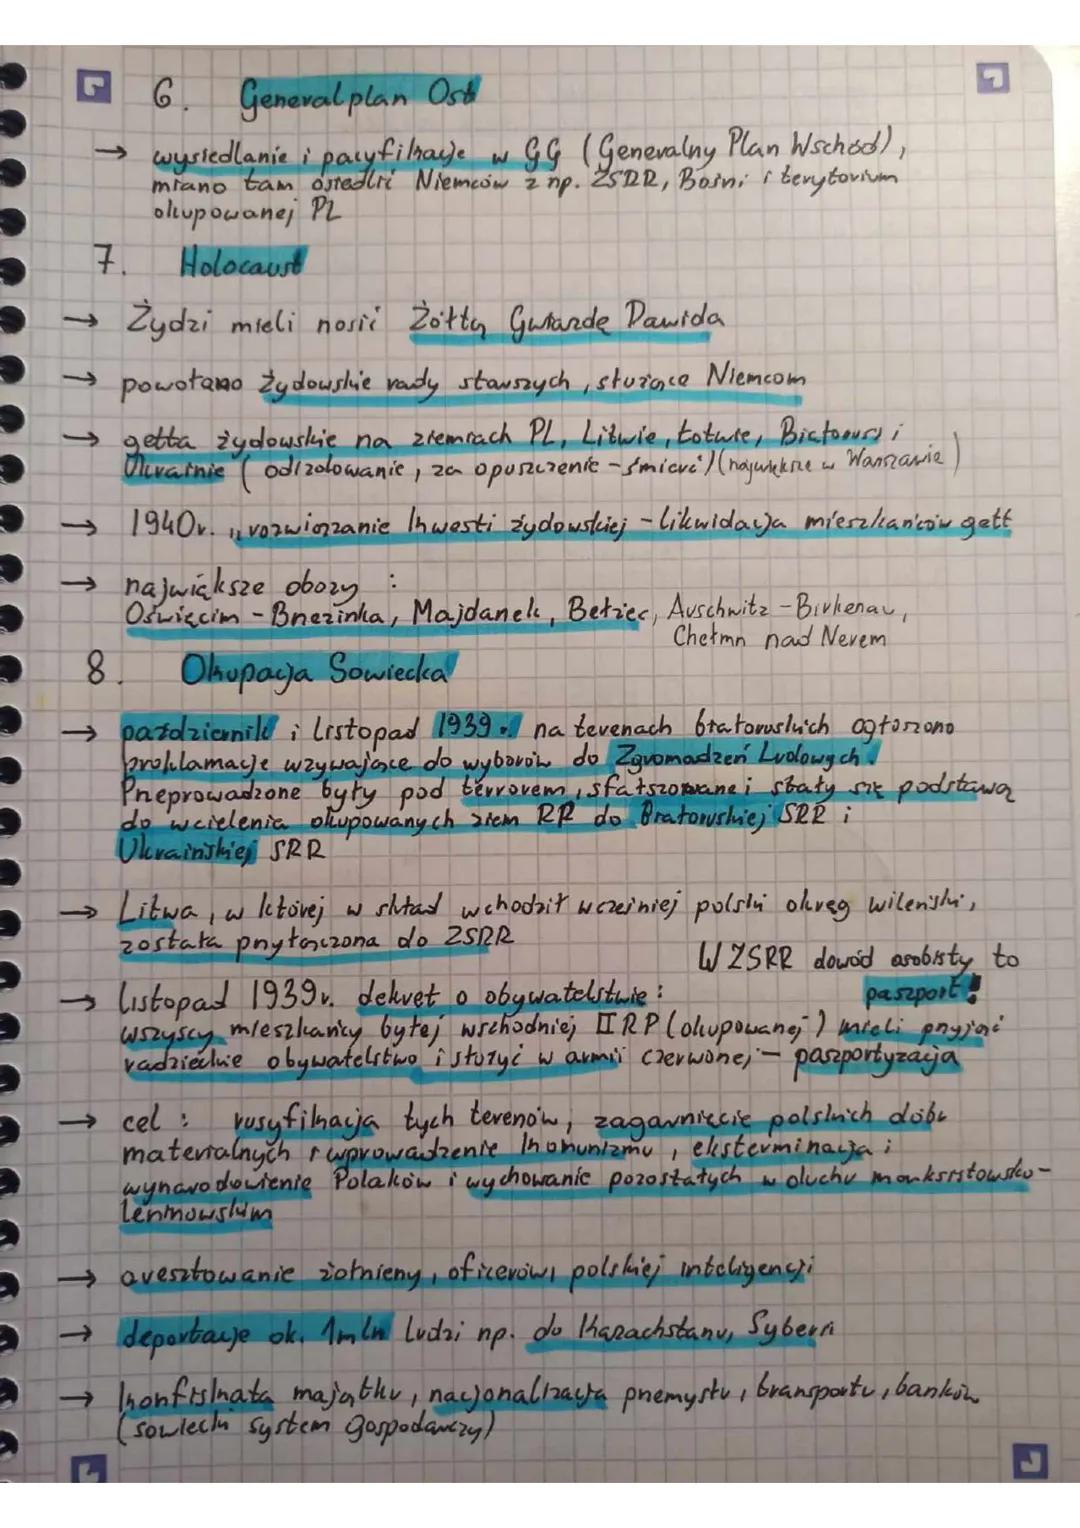 6. Generalplan Ost
→ wysiedlanie i pacyfikacje w GG (Generalny Plan Wschód),
miano tam osiedlić Niemców z np. ZSRR, Bośni i terytorium
okupowanej PL
7. Holocaust
→ Żydzi mieli nosić Żółtą Gwiazdę Dawida
→ powołano żydowskie rady starszych, służące Niemcom
→ getta żydowskie na ziemiach PL, Litwie, Łotwie, Białorusi i
Ukrainie (odizolowanie, za opuszczenie - śmierć) (największe w Warszawie)
→ 1940r. „rozwiązanie kwesti żydowskiej - likwidacja mieszkańców gett
→ największe obozy :
Oświęcim - Brzezinka, Majdanek, Bełżec, Auschwitz - Birkenau,
Chełmn nad Nerem
8. Okupacja Sowiecka
→ październik i listopad 1939r. na terenach białoruskich ogłoszono
proklamacje wzywające do wyborów do Zgromadzeń Ludowych.
Przeprowadzone były pod terrorem, sfałszowane i stały się podstawą
do wcielenia okupowanych ziem RP do Białoruskiej SRR i
Ukraińskiej SRR
→ Litwa, w której w skład wchodził wcześniej polski okręg wileński,
została przyłączona do ZSRR
W ZSRR dowód osobisty to
paszport!
→ listopad 1939r. dekret o obywatelstwie :
wszyscy mieszkańcy byłej wschodniej II RP (okupowanej) mieli przyjąć
radzieckie obywatelstwo i służyć w armii czerwonej - paszportyzacja
→ cel : rusyfikacja tych terenów, zagarnięcie polskich dóbr
materialnych i wprowadzenie komunizmu, eksterminacja i
wynarodowienie Polaków i wychowanie pozostałych w duchu marksistowsko-
leninowskim
→ aresztowanie żołnierzy, oficerów, polskiej inteligencji
→ deportacje ok. 1mln ludzi np. do Kazachstanu, Syberii
→ konfiskata majątku, nacjonalizacja przemysłu, transportu, banków
(sowiecki system gospodarczy)